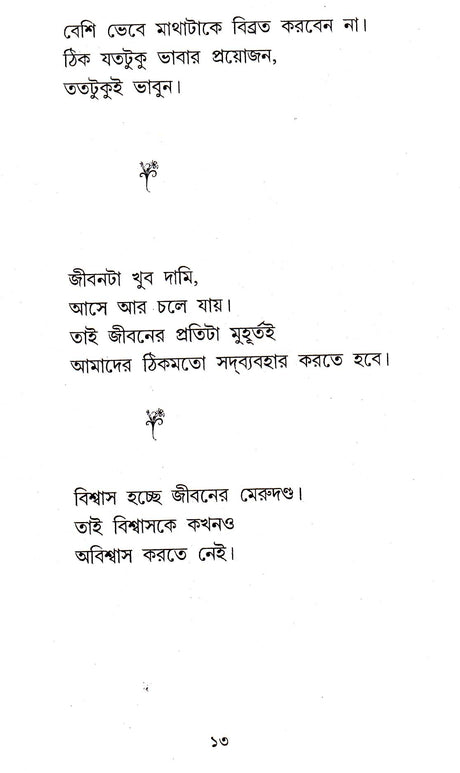 বেশি ভেবে মাথাটাকে বিব্রত করবেন না।
ঠিক যতটুকু ভাবার প্রয়োজন,
ততটুকুই ভাবুন।
জীবনটা খুব দামি,
আসে আর চলে যায়।
তাই জীবনের প্রতিটা মুহূর্তই
আমাদের ঠিকমতো সদ্ব্যবহার করতে হবে।
বিশ্বাস হচ্ছে জীবনের মেরুদণ্ড।
তাই বিশ্বাসকে কখনও
অবিশ্বাস করতে নেই।
১৩